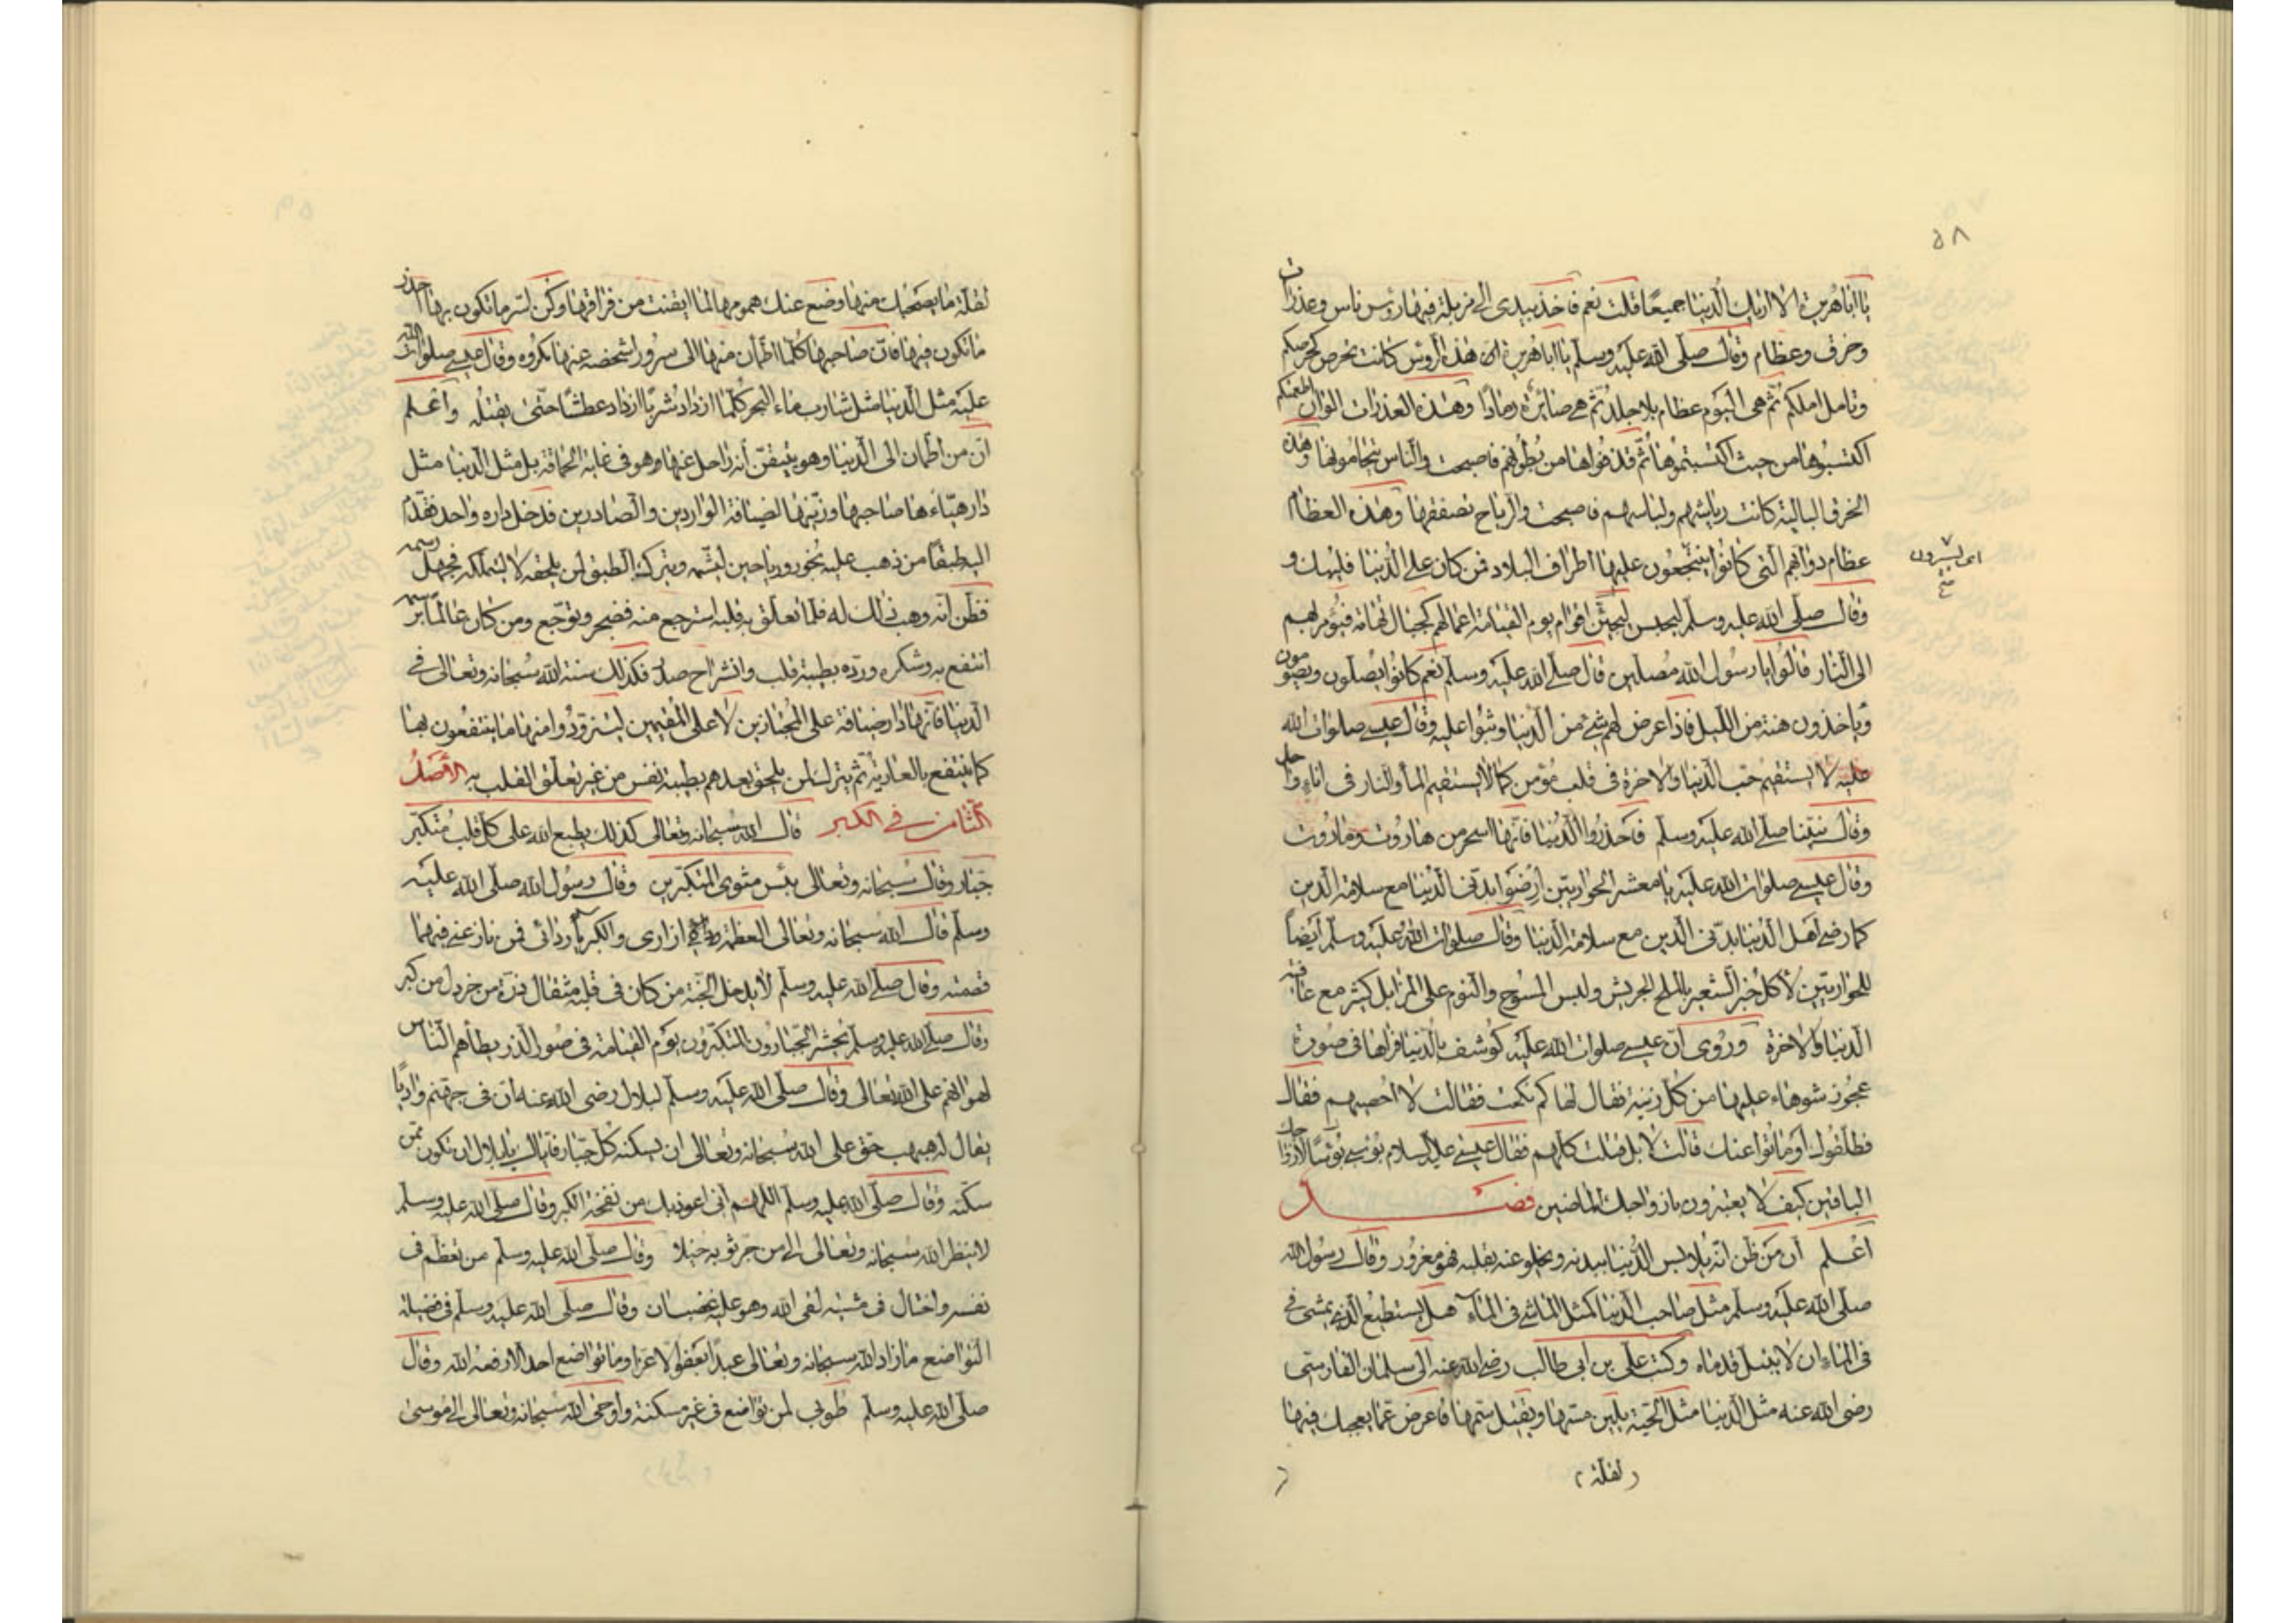 ٥٨
يا اباهريرة الا اريك الدنيا جميعًا قلت نعم فاخذ بيدى الى مزبلة فيها رؤس ناس وعذرات
وخرق وعظام وقال صلى الله عليه وسلم يا اباهريرة ان هذه الرؤس كانت تحرص كحرصكم
وتامل املكم ثم هى اليوم عظام بلا جلد ثم هى صائرة رمادًا وهذه العذرات الوان اطعمتكم
اكتسبوها من حيث اكتسبتموها ثم قذفوها من بطونهم فاصبحت والناس يتحامونها وهذه
الخرق البالية كانت رياشهم ولباسهم فاصبحت والرياح تصفقها وهذه العظام
عظام دوابهم التى كانوا ينتجعون عليها اطراف البلاد فمن كان على الدنيا فليبك و
اى يسيرون
وقال صلى الله عليه وسلم ليجيئن اقوام يوم القيامة اعمالهم كجبال تهامة فيؤمر بهم
الى النار قالوا يا رسول الله مصلين قال صلى الله عليه وسلم نعم كانوا يصلون ويصومون
وياخذون هنة من الليل فاذا عرض لهم شئ من الدنيا وثبوا عليه وقال عيسى صلوات الله
عليه لا يستقيم حب الدنيا والاخرة فى قلب مؤمن كما لا يستقيم الماء والنار فى اناء واحد
وقال نبينا صلى الله عليه وسلم فاحذروا الدنيا فانها اسحر من هاروت وماروت
وقال عيسى صلوات الله عليه يا معشر الحواريين ارضوا بدنى الدنيا مع سلامة الدين
كما رضى اهل الدنيا بدنى الدين مع سلامة الدنيا وقال صلوات الله عليه وسلم أيضاً
للحواريين لأكل خبز الشعير بالملح الجريش ولبس المسوح والنوم على المزابل كثير مع عافية
الدنيا والاخرة وروى ان عيسى صلوات الله عليه كوشف بالدنيا فراها فى صورة
عجوز شوهاء عليها من كل زينة فقال لها كم نكحت فقالت لا احصيهم فقال
فطلقوك او ماتوا عنك قالت لا بل قتلت كلهم فقال عيسى عليه السلام بؤسى لازواجك
الباقين كيف لا يعتبرون بازواجك الماضين فصل
اعلم ان من ظن انه يلابس الدنيا ببدنه ويخلو عنه بقلبه فهو مغرور وقال رسول الله
صلى الله عليه وسلم مثل صاحب الدنيا كمثل الماشى فى الماء هل يستطيع الذى يمشى فى
فى الماء ان لا يبتل قدماه وكتب على بن ابى طالب رضى الله عنه الى سلمان الفارسى
رضى الله عنه مثل الدنيا مثل الحية يلين مسها ويقتل سمها فاعرض عما يعجبك فيها
(لقلة)
لقلة ما يصحبك منها وضع عنك همومها لما ايقنت من فراقها وكن اسر ما تكون بها احذر
ما تكون فيها فان صاحبها كلما اطمأن منها الى سرور اشخصه عنها مكروه وقال عيسى صلوات الله
عليه مثل الدنيا مثل شارب ماء البحر كلما ازداد شربًا ازداد عطشًا حتى يقتله واعلم
ان من اطمان الى الدنيا وهو يتيقن أنه راحل عنها وهو فى غاية الحماقة بل مثل الدنيا مثل
دار هيّاءها صاحبها وزينها لضيافة الواردين والصادرين فدخل داره واحد فقدم
اليه طبقًا من ذهب عليه بخور ورياحين ليشمه ويترك الطبق لمن يلحقه لا ليتملكه فجهل رسمه
فظن انه وهب ذلك له فلما تعلق به قلبه استرجع منه فضجر وتوجع ومن كان عالمًا برسمه
انتفع به وشكره ورده بطيبة قلب وانشراح صدر فكذلك سنة الله سبحانه وتعالى فى
الدنيا فانها دار ضيافة على المجتازين لا على المقيمين ليتزودوا منها ما ينتفعون بها
كما ينتفع بالعارية ثم يترك لمن يلحق بعدهم بطيبة نفس من غير تعلق القلب به الاصل
الثامن فى الكبر قال الله سبحانه وتعالى كذلك يطبع الله على كل قلب متكبر
جبار وقال سبحانه وتعالى بئس مثوى المتكبرين وقال رسول الله صلى الله عليه
وسلم قال الله سبحانه وتعالى العظمة ازارى والكبرياء ردائى فمن نازعنى فيهما
قصمته وقال صلى الله عليه وسلم لا يدخل الجنة من كان فى قلبه مثقال ذرة من خردل من كبر
وقال صلى الله عليه وسلم يحشر الجبارون المتكبرون يوم القيامة فى صور الذر يطأهم الناس
لهوانهم على الله تعالى وقال صلى الله عليه وسلم لبلال رضى الله عنه ان فى جهنم واديًا
يقال له هبهب حق على الله سبحانه وتعالى ان يسكنه كل جبار فاياك يا بلال ان تكون ممن
سكنه وقال صلى الله عليه وسلم اللهم انى اعوذ بك من نفخة الكبر وقال صلى الله عليه وسلم
لا ينظر الله سبحانه وتعالى الى من جر ثوبه خيلاء وقال صلى الله عليه وسلم من تعظم فى
نفسه واختال فى مشيه لقى الله وهو عليه غضبان وقال صلى الله عليه وسلم فى فضيلة
التواضع ما زاد الله سبحانه وتعالى عبدًا بعفو الا عزا وما تواضع احد الا رفعه الله وقال
صلى الله عليه وسلم طوبى لمن تواضع فى غير مسكنة واوحى الله سبحانه وتعالى الى موسى